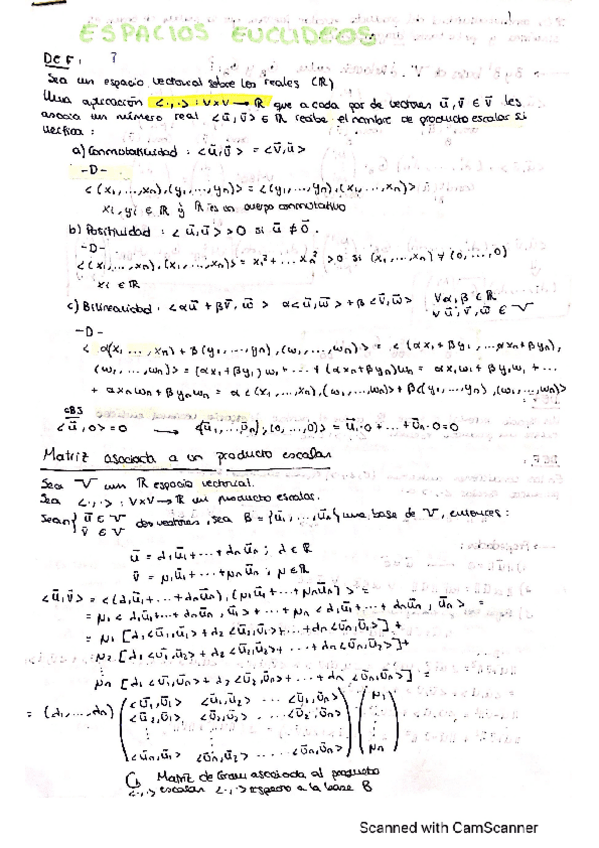 1
ESPACIOS EUCLIDEOS
DEF:
Sea un espacio vectorial sobre los reales (ℝ)
Una aplicación <·,·> : V×V → ℝ que a cada par de vectores ū, v̄ ∈ V̄ les
asocia un número real <ū,v̄> ∈ ℝ recibe el nombre de producto escalar si
verifica :
a) Conmutatividad : <ū,v̄> = <v̄,ū>
-D-
<(x₁,...,xn),(y₁,...,yn)> = <(y₁,...,yn),(x₁,...,xn)>
xi, yi ∈ ℝ y ℝ es un cuerpo conmutativo
b) Positividad : <ū,ū> > 0 si ū ≠ 0̄.
-D-
<(x₁,...,xn),(x₁,...,xn)> = x₁² + ... xn² > 0 si (x₁,...,xn) ≠ (0,...,0)
xi ∈ ℝ
c) Bilinealidad : <αū + βv̄, w̄> α<ū,w̄> + β<v̄,w̄> ∀α,β ∈ ℝ
∀ū,v̄,w̄ ∈ V
-D-
< α(x₁,...,xn) + β(y₁,...,yn),(w₁,...,wn)> = <(αx₁+βy₁,...,αxn+βyn),
(w₁,...,wn)> = (αx₁+βy₁)w₁ + ... + (αxn+βyn)wn = αx₁w₁ + βy₁w₁ + ...
+ αxnwn + βynwn = α<(x₁,...,xn),(w₁,...,wn)> + β<(y₁,...,yn),(w₁,...,wn)>
OBS
<ū,0> = 0 → {ū₁,...,ūn},(0,...,0)> = ū₁·0 + ... + ūn·0 = 0
Matriz asociada a un producto escalar
Sea V un ℝ espacio vectorial.
Sea <·,·> : V×V → ℝ un producto escalar.
Sean { ū ∈ V v̄ ∈ V dos vectores, sea B = {ū₁,...,ūn} una base de V, entonces :
ū = λ₁ū₁ + ... + λnūn ; λ ∈ ℝ
v̄ = μ₁ū₁ + ... + μnūn ; μ ∈ ℝ
<ū,v̄> = <(λ₁ū₁ + ... + λnūn),(μ₁ū₁ + ... + μnūn)> =
= μ₁<λ₁ū₁ + ... + λnūn, ū₁> + ... + μn<λ₁ū₁ + ... + λnūn, ūn> =
= μ₁[λ₁<ū₁,ū₁> + λ₂<ū₂,ū₁> + ... + λn<ūn,ū₁>] +
μ₂[λ₁<ū₁,ū₂> + λ₂<ū₂,ū₂> + ... + λn<ūn,ū₂>] +
⋮
μn[λ₁<ū₁,ūn> + λ₂<ū₂,ūn> + ... + λn<ūn,ūn>] =
= (λ₁,...,λn) ( <ū₁,ū₁> <ū₁,ū₂> ... <ū₁,ūn> ) ( μ₁
<ū₂,ū₁> <ū₂,ū₂> ... <ū₂,ūn>
⋮ ⋮
<ūn,ū₁> <ūn,ū₂> ... <ūn,ūn> μn )
Matriz de Gram asociada al producto
escalar <·,·> respecto a la base B
Scanned with CamScanner